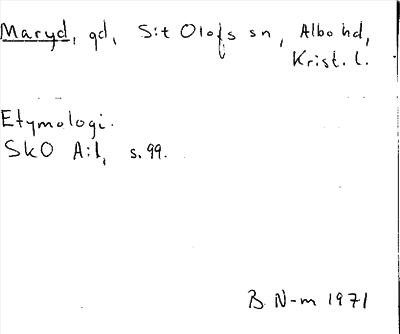 Maryd, gd, S:t Olofs sn, Albo hd,
Krist. l.
Etymologi.
SkO A:1, s. 99.
B N-m 1971